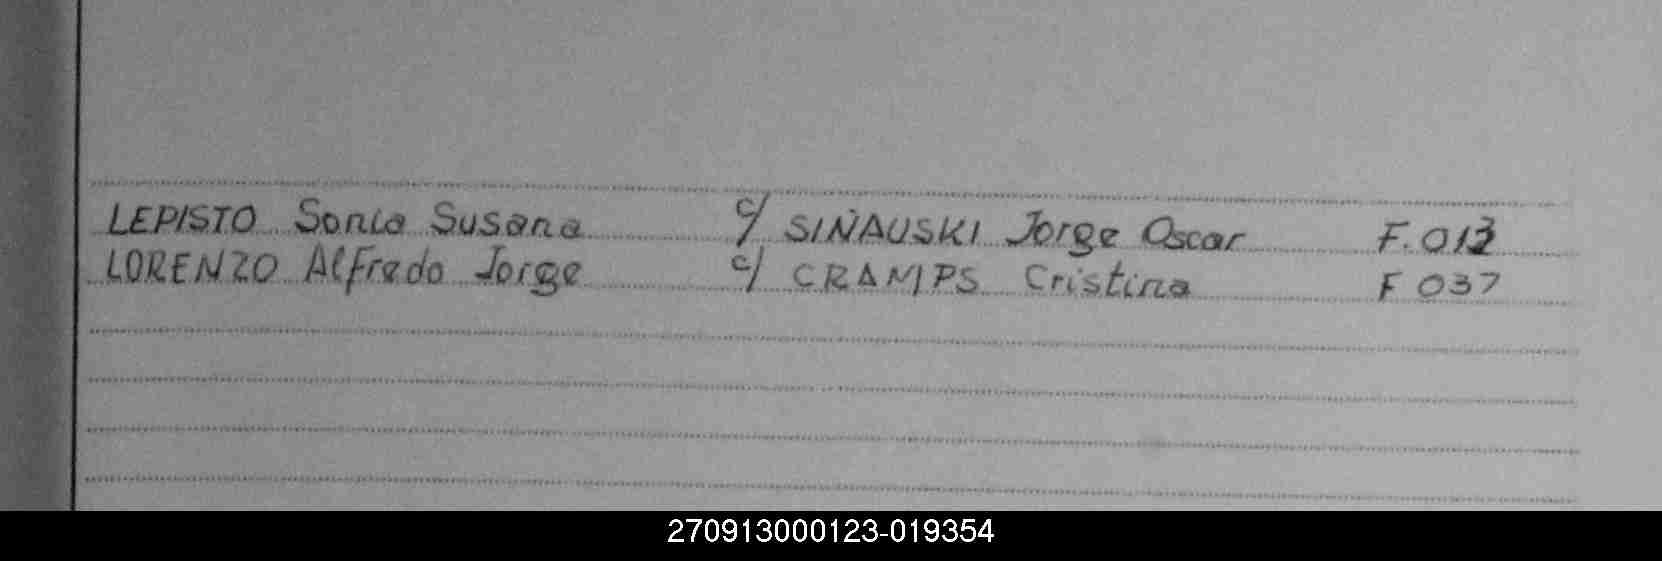 LEPISTO Sonia Susana c/ SIÑAUSKI Jorge Oscar F. 012
LORENZO Alfredo Jorge c/ CRAMPS Cristina F 037
270913000123-019354